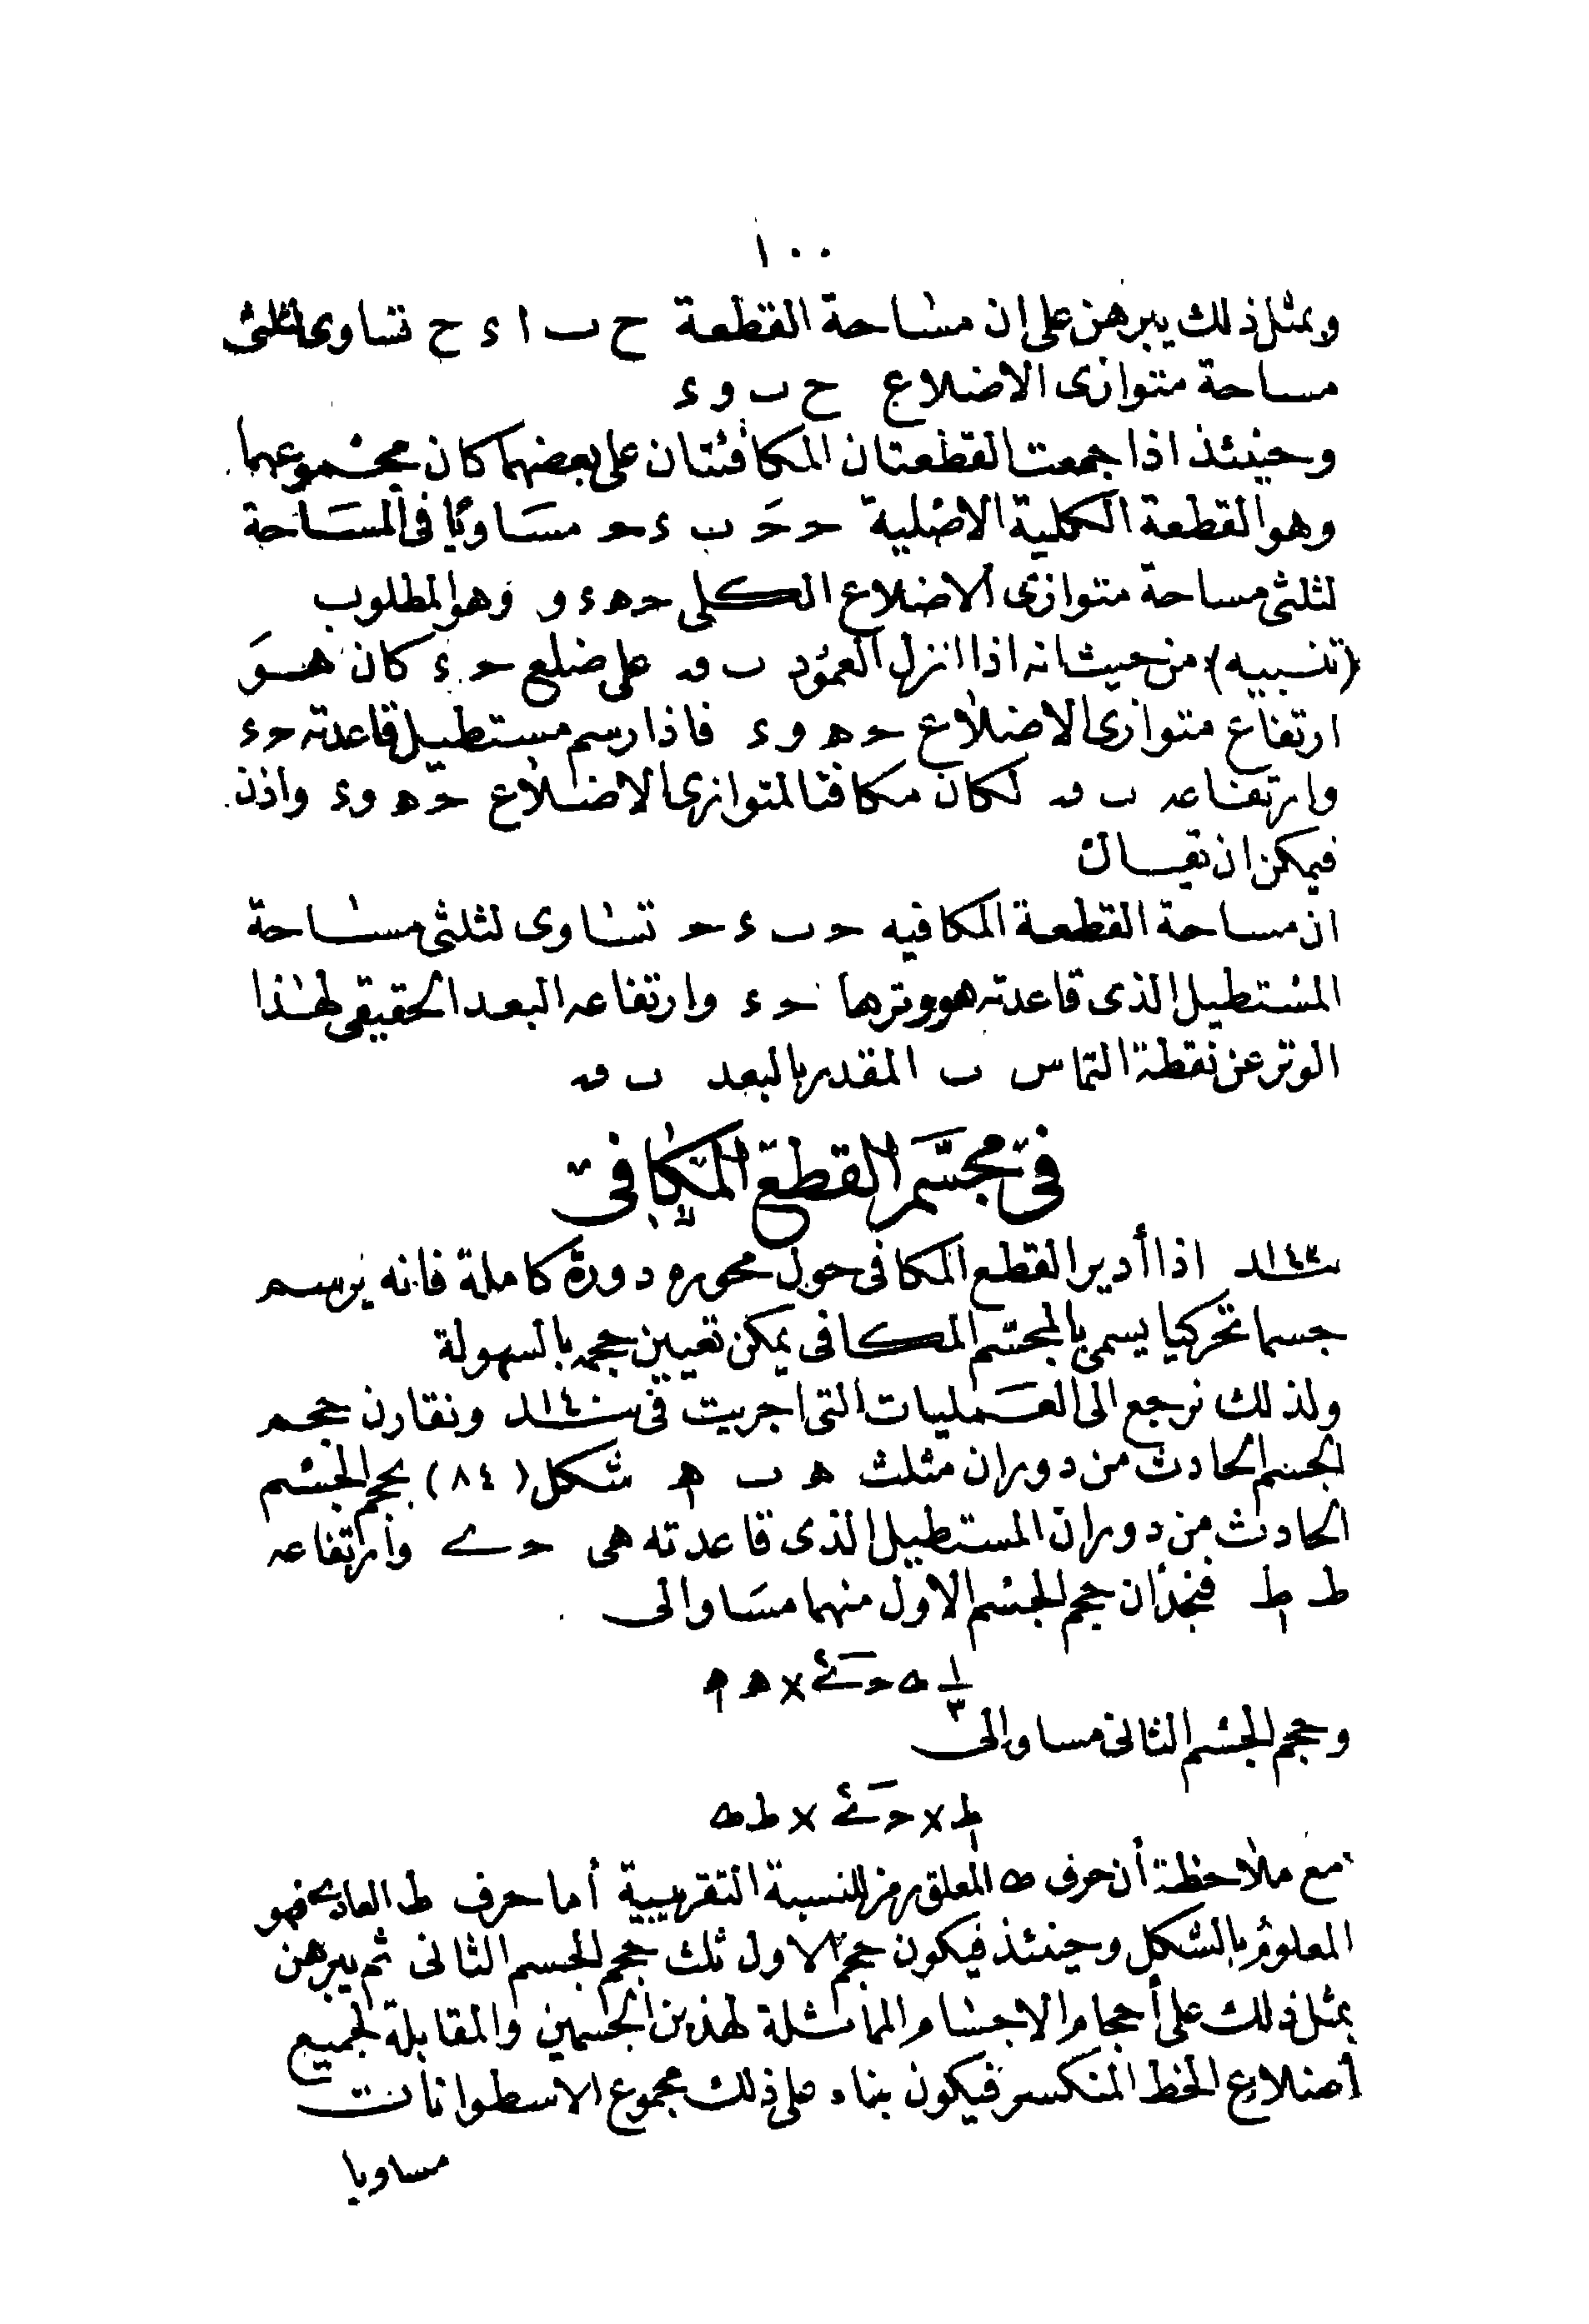 ١٠٠
وبمثل ذلك يبرهن على ان مساحة القطعة ح ب ا ء ح تساوى لثلثى
مساحة متوازى الاضلاع ح ب و ء
وحينئذ اذا جمعت القطعتان المكافئتان على بعضهما كان مجموعهما
وهو القطعة الكلية الاصلية حـ حَـ ب ء حـ مساويًا فى المساحة
لثلثى مساحة متوازى الاضلاع الكلى حـ هـ ء و وهو المطلوب
(تنبيه) من حيث انه اذا انزل العمود ب ق على ضلع حـ ء كان هو
ارتفاع متوازى الاضلاع حـ هـ و ء فاذا رسم مستطيل قاعدته حـ ء
وارتفاعه ب ق لكان مكافئا لمتوازى الاضلاع حـ هـ و ء واذن
فيمكن ان يقال
ان مساحة القطعة المكافيه حـ ب ء حـ تساوى لثلثى مساحة
المستطيل الذى قاعدته هو وترها حـ ء وارتفاعه البعد الحقيقى لهذا
الوتر عن نقطة التماس ب المقدر بالبعد ب ق
فى مجسم القطع المكافى
١٤٣ـند اذا أدير القطع المكافى حول محوره دورة كاملة فانه يرسم
جسما تحركيا يسمى بالمجسم المكافى يمكن تعيين حجمه بالسهولة
ولذلك نرجع الى العمليات التى اجريت فى ١٤٠ـند ونقارن حجم
الجسم الحادث من دوران مثلث هـ ب هـ شكل (٨٤) بحجم الجسم
الحادث من دوران المستطيل الذى قاعدته هى حـ ے وارتفاعه
ط ط فنجد ان حجم الجسم الاول منهما مساو الى
١/٣ ط حـ ے٢ × هـ هـ
وحجم الجسم الثانى مساو الى
ط × حـ ے٢ × ط ط
مع ملاحظة أن حرف ط المعلق رمز للنسبة التقريبية أما حرف ط العادى فهو
المعلوم بالشكل وحينئذ فيكون حجم الاول ثلث حجم الجسم الثانى ثم يبرهن
بمثل ذلك على أحجام الاجسام المماثلة لهذين الجسمين والمقابلة لجميع
أضلاع الخط المنكسر فيكون بناء على ذلك مجموع الاسطوانات
مساويا